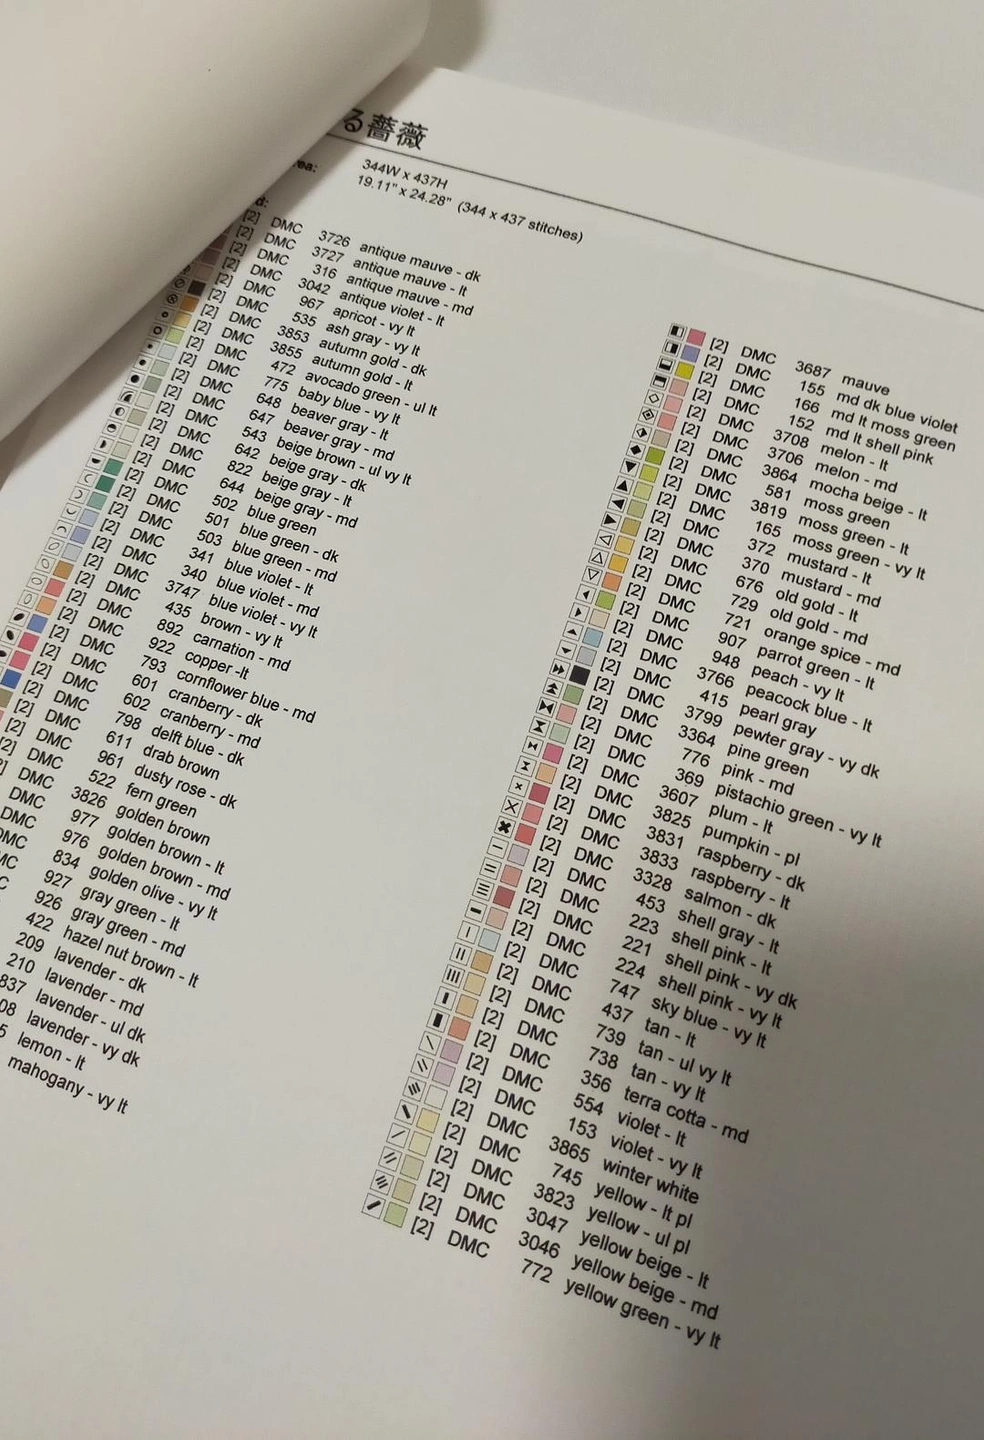 る薔薇
ea: 344W x 437H
19.11" x 24.28" (344 x 437 stitches)
d:
[2] DMC 3726 antique mauve - dk
[2] DMC 3727 antique mauve - lt
[2] DMC 316 antique mauve - md
[2] DMC 3042 antique violet - lt
[2] DMC 967 apricot - vy lt
[2] DMC 535 ash gray - vy lt
[2] DMC 3853 autumn gold - dk
[2] DMC 3855 autumn gold - lt
[2] DMC 472 avocado green - ul lt
[2] DMC 775 baby blue - vy lt
[2] DMC 648 beaver gray - lt
[2] DMC 647 beaver gray - md
[2] DMC 543 beige brown - ul vy lt
[2] DMC 642 beige gray - dk
[2] DMC 822 beige gray - lt
[2] DMC 644 beige gray - md
[2] DMC 502 blue green
[2] DMC 501 blue green - dk
[2] DMC 503 blue green - md
[2] DMC 341 blue violet - lt
[2] DMC 340 blue violet - md
[2] DMC 3747 blue violet - vy lt
[2] DMC 435 brown - vy lt
[2] DMC 892 carnation - md
[2] DMC 922 copper -lt
[2] DMC 793 cornflower blue - md
[2] DMC 601 cranberry - dk
[2] DMC 602 cranberry - md
[2] DMC 798 delft blue - dk
[2] DMC 611 drab brown
[2] DMC 961 dusty rose - dk
[2] DMC 522 fern green
[2] DMC 3826 golden brown
DMC 977 golden brown - lt
DMC 976 golden brown - md
DMC 834 golden olive - vy lt
MC 927 gray green - lt
C 926 gray green - md
422 hazel nut brown - lt
209 lavender - dk
210 lavender - md
837 lavender - ul dk
08 lavender - vy dk
5 lemon - lt
mahogany - vy lt
[2] DMC 3687 mauve
[2] DMC 155 md dk blue violet
[2] DMC 166 md lt moss green
[2] DMC 152 md lt shell pink
[2] DMC 3708 melon - lt
[2] DMC 3706 melon - md
[2] DMC 3864 mocha beige - lt
[2] DMC 581 moss green
[2] DMC 3819 moss green - lt
[2] DMC 165 moss green - vy lt
[2] DMC 372 mustard - lt
[2] DMC 370 mustard - md
[2] DMC 676 old gold - lt
[2] DMC 729 old gold - md
[2] DMC 721 orange spice - md
[2] DMC 907 parrot green - lt
[2] DMC 948 peach - vy lt
[2] DMC 3766 peacock blue - lt
[2] DMC 415 pearl gray
[2] DMC 3799 pewter gray - vy dk
[2] DMC 3364 pine green
[2] DMC 776 pink - md
[2] DMC 369 pistachio green - vy lt
[2] DMC 3607 plum - lt
[2] DMC 3825 pumpkin - pl
[2] DMC 3831 raspberry - dk
[2] DMC 3833 raspberry - lt
[2] DMC 3328 salmon - dk
[2] DMC 453 shell gray - lt
[2] DMC 223 shell pink - lt
[2] DMC 221 shell pink - vy dk
[2] DMC 224 shell pink - vy lt
[2] DMC 747 sky blue - vy lt
[2] DMC 437 tan - lt
[2] DMC 739 tan - ul vy lt
[2] DMC 738 tan - vy lt
[2] DMC 356 terra cotta - md
[2] DMC 554 violet - lt
[2] DMC 153 violet - vy lt
[2] DMC 3865 winter white
[2] DMC 745 yellow - lt pl
[2] DMC 3823 yellow - ul pl
[2] DMC 3047 yellow beige - lt
[2] DMC 3046 yellow beige - md
[2] DMC 772 yellow green - vy lt